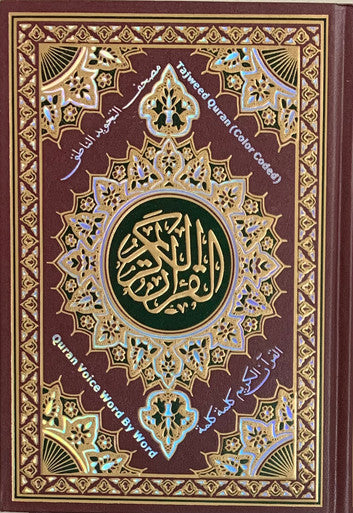 مصحف التجويد الناطق
Tajweed Quran (Color Coded)
القرآن الكريم
Quran Voice Word By Word
القرآن الكريم كلمة كلمة